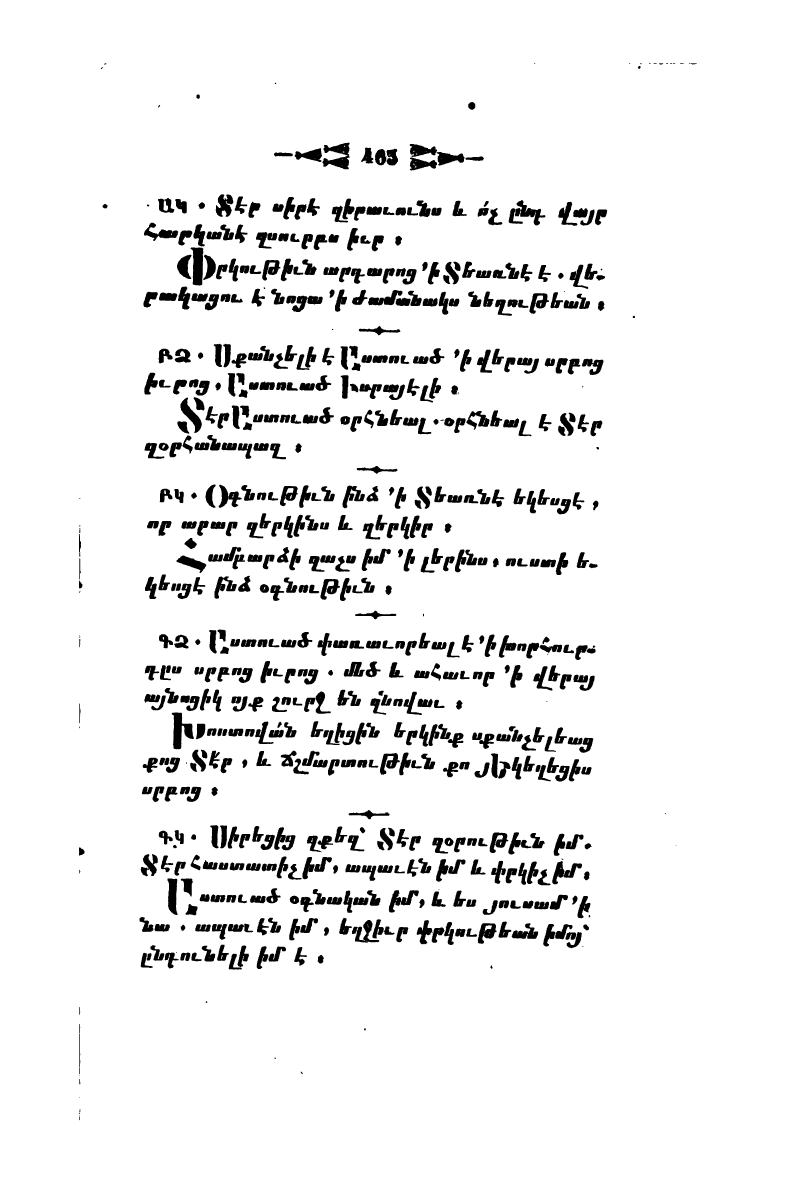 463
ԱԿ ․ Տէր սիրէ զիրաւունս և ո՛չ ընդ վայր
Հարկանէ զսուրբս իւր ։
Փրկութիւն արդարոց ՚ի Տեառնէ է ․ վե֊
րակացու է նոցա ՚ի ժամանակս նեղութեան ։
ԲՁ ․ Սքանչելի է Աստուած ՚ի վերայ սրբոց
իւրոց ․ Աստուած Իսրայէլի ։
Տէր Աստուած օրհնեալ ․ օրհնեալ է Տէր
զօրհանապազ ։
ԲԿ ․ Օգնութիւն ինձ ՚ի Տեառնէ եկեսցէ ,
որ արար զերկինս և զերկիր ։
Համբարձի զաչս իմ ՚ի լերինս , ուստի ե֊
կեսցէ ինձ օգնութիւն ։
ԳՁ ․ Աստուած փառաւորեալ է ՚ի խորհուր֊
դըս սրբոց իւրոց ․ մեծ և ահաւոր ՚ի վերայ
այնոցիկ ոյք շուրջ են զնովաւ ։
Խոստովա՛ն եղիցին երկինք սքանչելեաց
քոց Տէ՛ր , և ճշմարտութիւն քո յեկեղեցիս
սրբոց ։
ԳԿ ․ Սիրեցից զքեզ՝ Տէր զօրութիւն իմ ․
Տէր հաստատիչ իմ , ապաւէն իմ և փրկիչ իմ ։
Աստուած օգնական իմ , և ես յուսամ ՚ի
նա ․ ապաւէն իմ , եղջիւր փրկութեան իմոյ՝
ընդունելի իմ է ։